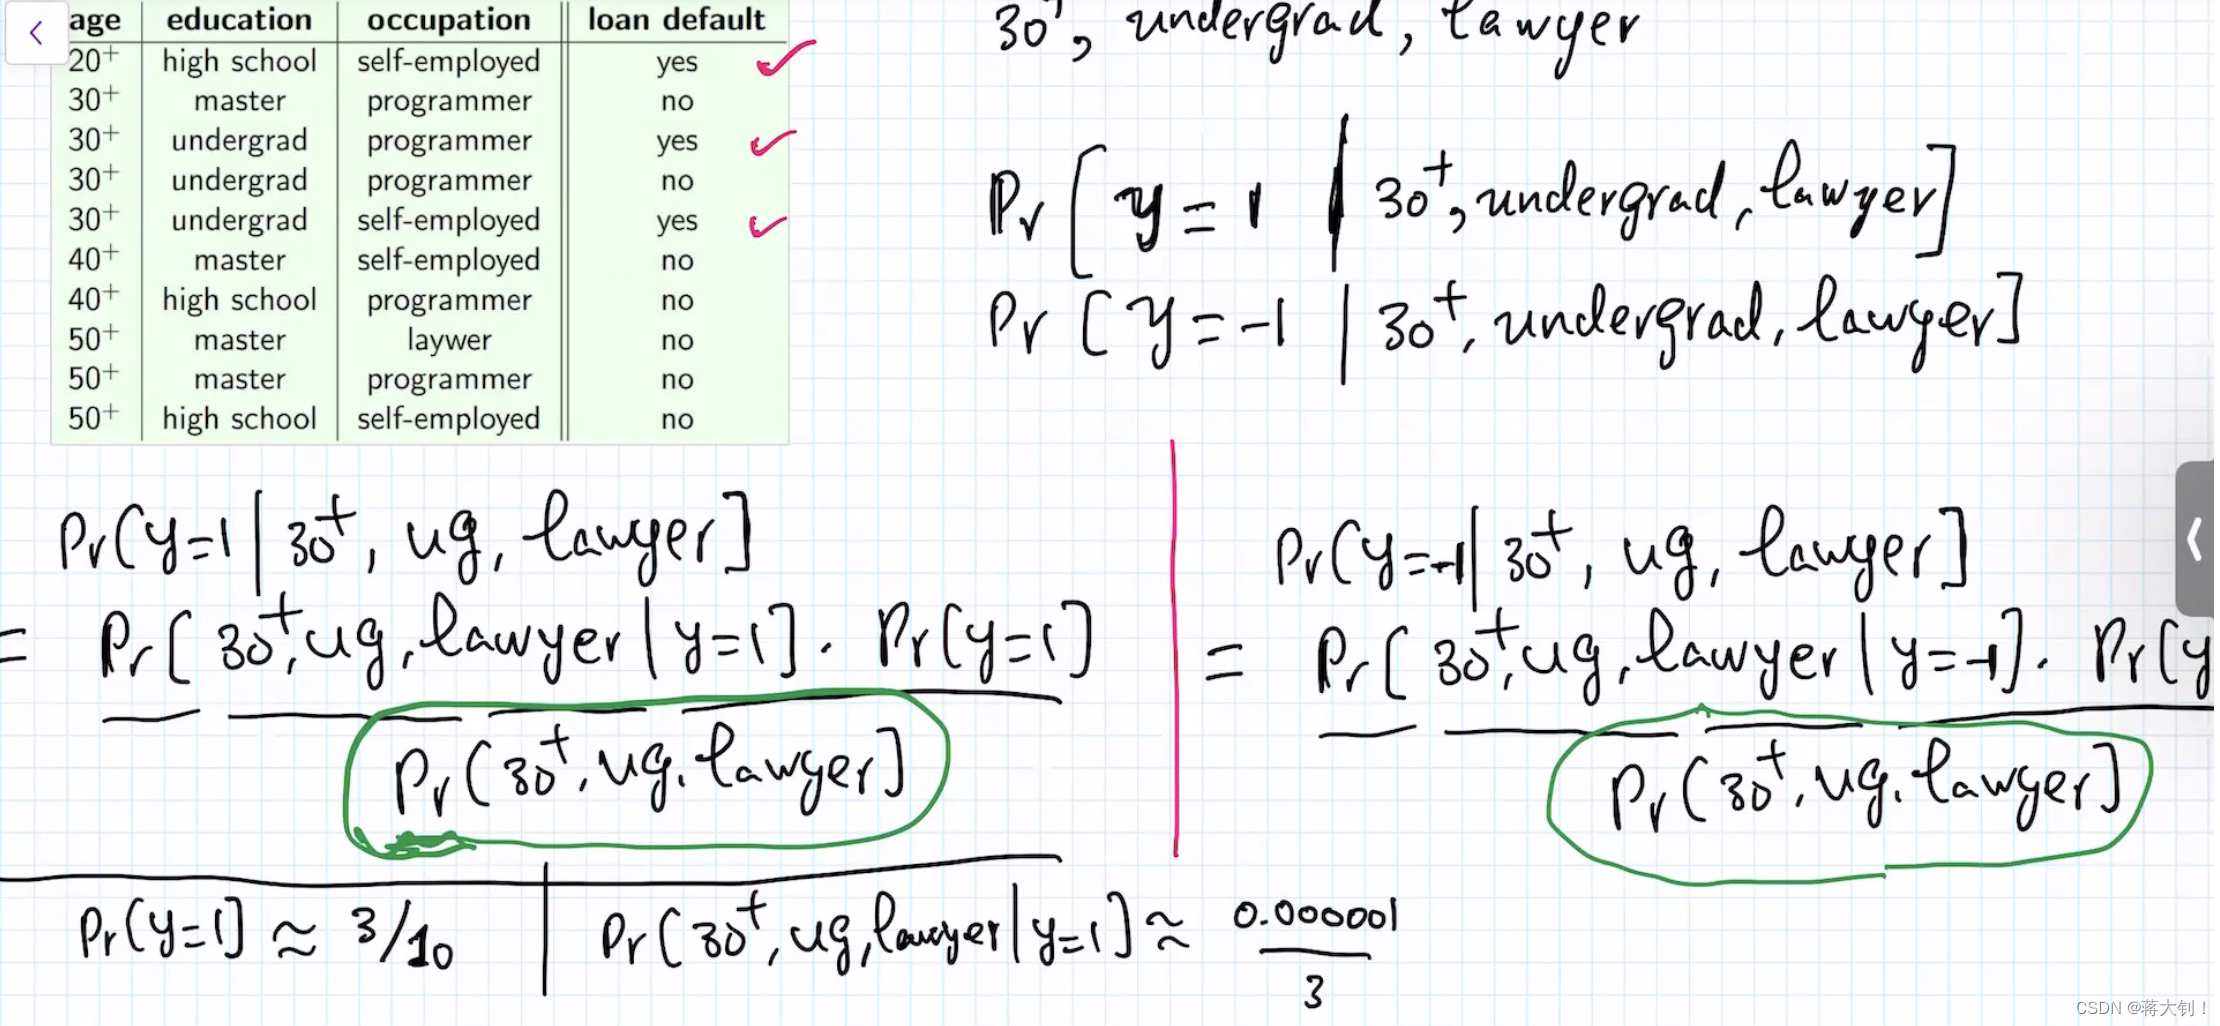 age education occupation loan default
20+ high school self-employed yes
30+ master programmer no
30+ undergrad programmer yes
30+ undergrad programmer no
30+ undergrad self-employed yes
40+ master self-employed no
40+ high school programmer no
50+ master laywer no
50+ master programmer no
50+ high school self-employed no
30+, undergrad, lawyer
Pr[y=1 | 30+, undergrad, lawyer]
Pr[y=-1 | 30+, undergrad, lawyer]
Pr[y=1 | 30+, ug, lawyer]
= Pr[30+, ug, lawyer | y=1] · Pr[y=1]
Pr[30+, ug, lawyer]
Pr[y=-1 | 30+, ug, lawyer]
= Pr[30+, ug, lawyer | y=-1] · Pr[y
Pr[30+, ug, lawyer]
Pr[y=1] ≈ 3/10
Pr[30+, ug, lawyer | y=1] ≈ 0.000001
3
CSDN @蒋大钊！